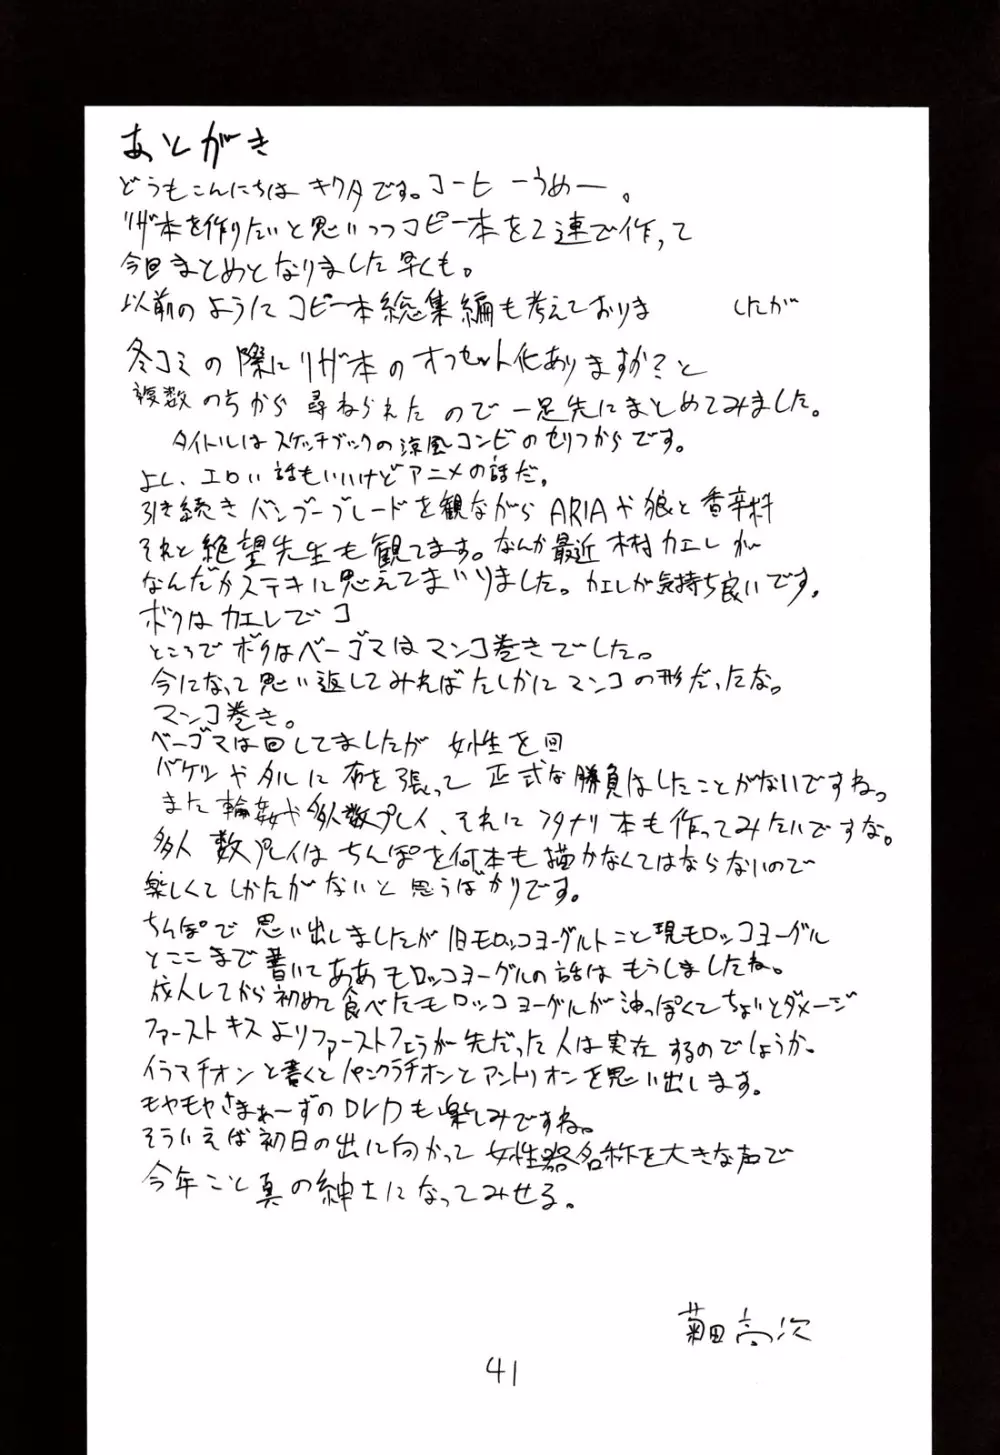 あとがき
どうもこんにちは キクタです。コーヒーうめー。
リザ本を作りたいと思いつつコピー本を2連で作って
今回まとめとなりました早くも。
以前のようにコピー本総集編も考えておりま したが
冬コミの際にリザ本のオフセット化ありますか?と
複数のちから尋ねられたので一足先にまとめてみました。
タイトルはスケッチブックの涼風コンビのセリフからです。
よし、エロい話もいいけどアニメの話だ。
引き続きバンブーブレードを観ながらARIAや狼と香辛料
それと絶望先生も観てます。なんか最近木村カエレが
なんだかステキに思えてまいりました。カエレが気持ち良いです。
ボクはカエレでコ
ところでボクはベーゴマはマンコ巻きでした。
今になって思い返してみればたしかにマンコの形だったな。
マンコ巻き。
ベーゴマは回してましたが女性を回
バケツやタルに布を張って正式な勝負はしたことがないですね。
また輪姦や多人数プレイ、それにフタナリ本も作ってみたいですな。
多人数プレイはちんぽを何本も描かなくてはならないので
楽しくてしかたがないと思うばかりです。
ちんぽで思い出しましたが旧モロッコヨーグルトこと現モロッコヨーグル
とここまで書いてああモロッコヨーグルの話はもうしましたね。
成人してから初めて食べたモロッコヨーグルが油っぽくてちょいとダメージ
ファーストキスよりファーストフェラが先だった人は実在するのでしょうか。
イラマチオンと書くとパンクラチオンとアントリオンを思い出します。
モヤモヤさまぁ〜ずのDVDも楽しみですね。
そういえば初日の出に向かって女性器名称を大きな声で
今年こそ真の紳士になってみせる。
菊田高次
41